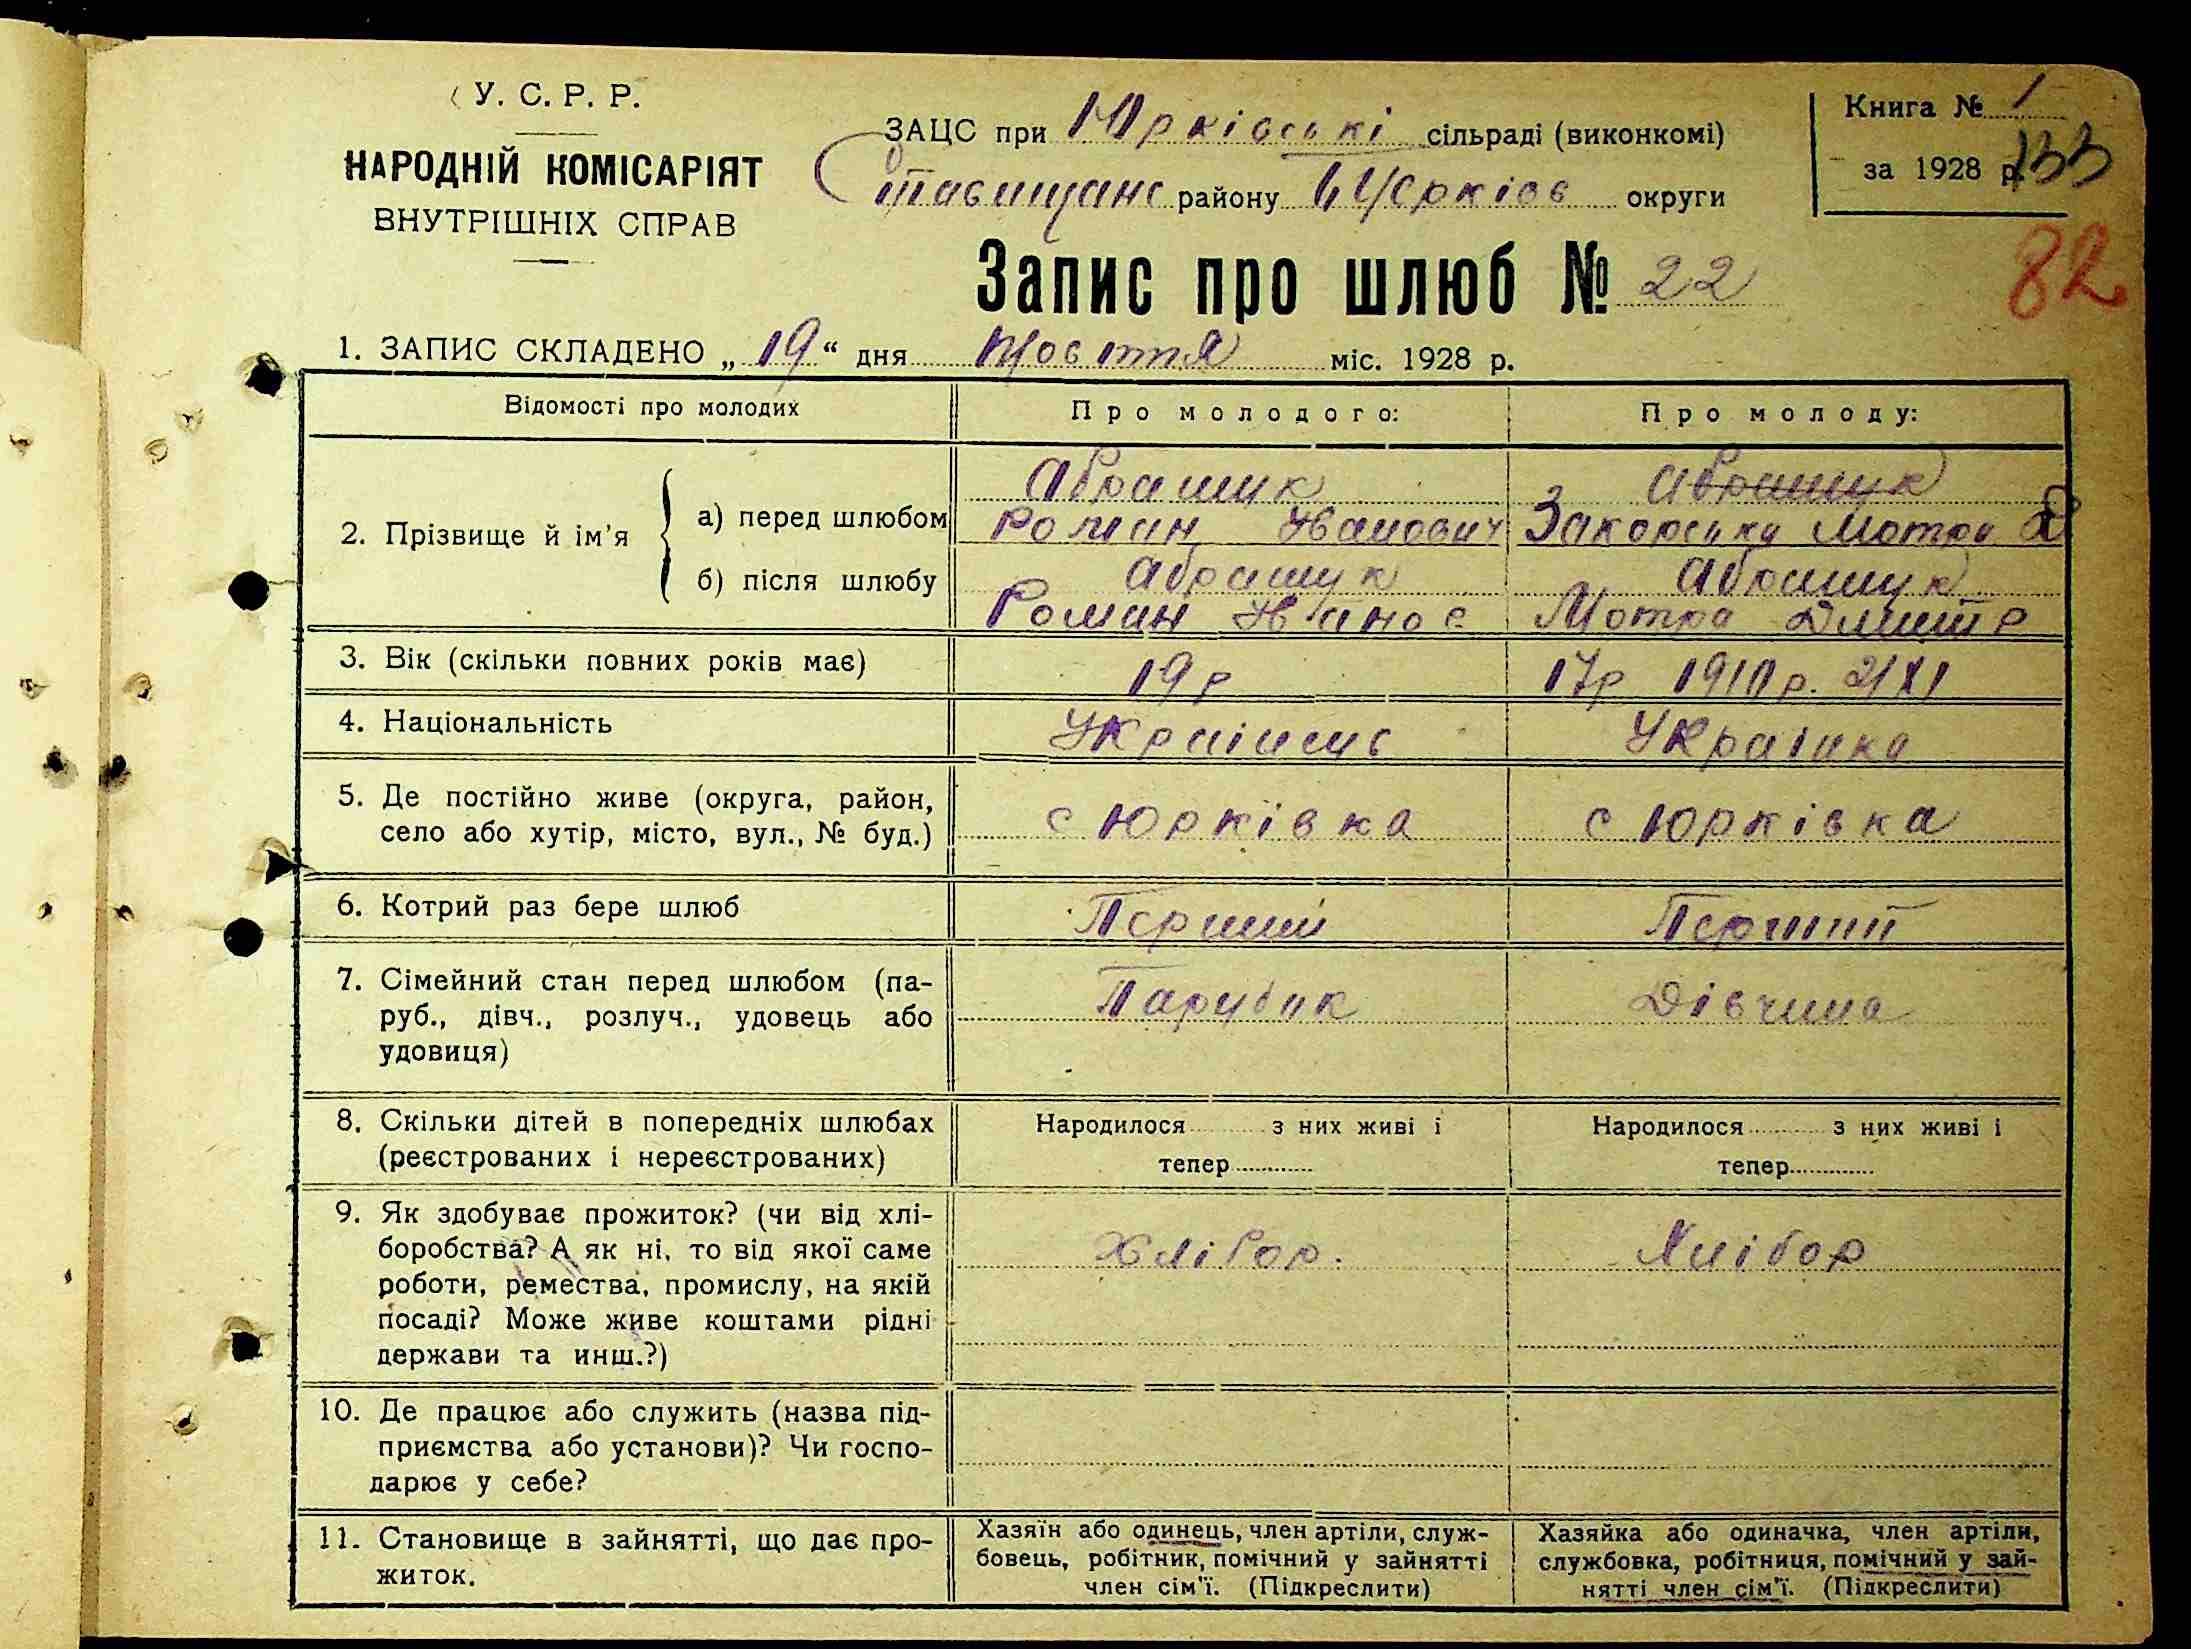 У. С. Р. Р.
НАРОДНІЙ КОМІСАРІЯТ
ВНУТРІШНІХ СПРАВ
ЗАЦС при Юрківські сільраді (виконкомі)
Ставищанс району БЦерків округи
Книга № 1
за 1928 р.
133
82
Запис про шлюб № 22
1. ЗАПИС СКЛАДЕНО „ 19 “ дня Жовтня міс. 1928 р.
Відомості про молодих
Про молодого:
Про молоду:
2. Прізвище й ім'я
а) перед шлюбом
Абрашук
Роман Иванович
Абрашук
Закорська Мотра Д
б) після шлюбу
Абрашук
Роман Иванов
Абрашук
Мотра Дмитр
3. Вік (скільки повних років має)
19 р
17р 1910 р. 2/XI
4. Національність
Украінець
Украінка
5. Де постійно живе (округа, район,
село або хутір, місто, вул., № буд.)
с Юрківка
с Юрківка
6. Котрий раз бере шлюб
Перший
Перший
7. Сімейний стан перед шлюбом (па-
руб., дівч., розлуч., удовець або
удовиця)
Парубок
Дівчина
8. Скільки дітей в попередніх шлюбах
(реєстрованих і нереєстрованих)
Народилося з них живі і
тепер
Народилося з них живі і
тепер
9. Як здобуває прожиток? (чи від хлі-
боробства? А як ні, то від якої саме
роботи, ремества, промислу, на якій
посаді? Може живе коштами рідні
держави та инш.?)
Хлібор.
Хлібор
10. Де працює або служить (назва під-
приємства або установи)? Чи госпо-
дарює у себе?
11. Становище в зайнятті, що дає про-
житок.
Хазяїн або одинець, член артіли, служ-
бовець, робітник, помічний у зайнятті
член сім'ї. (Підкреслити)
Хазяйка або одиначка, член артіли,
службовка, робітниця, помічний у зай-
нятті член сім'ї. (Підкреслити)